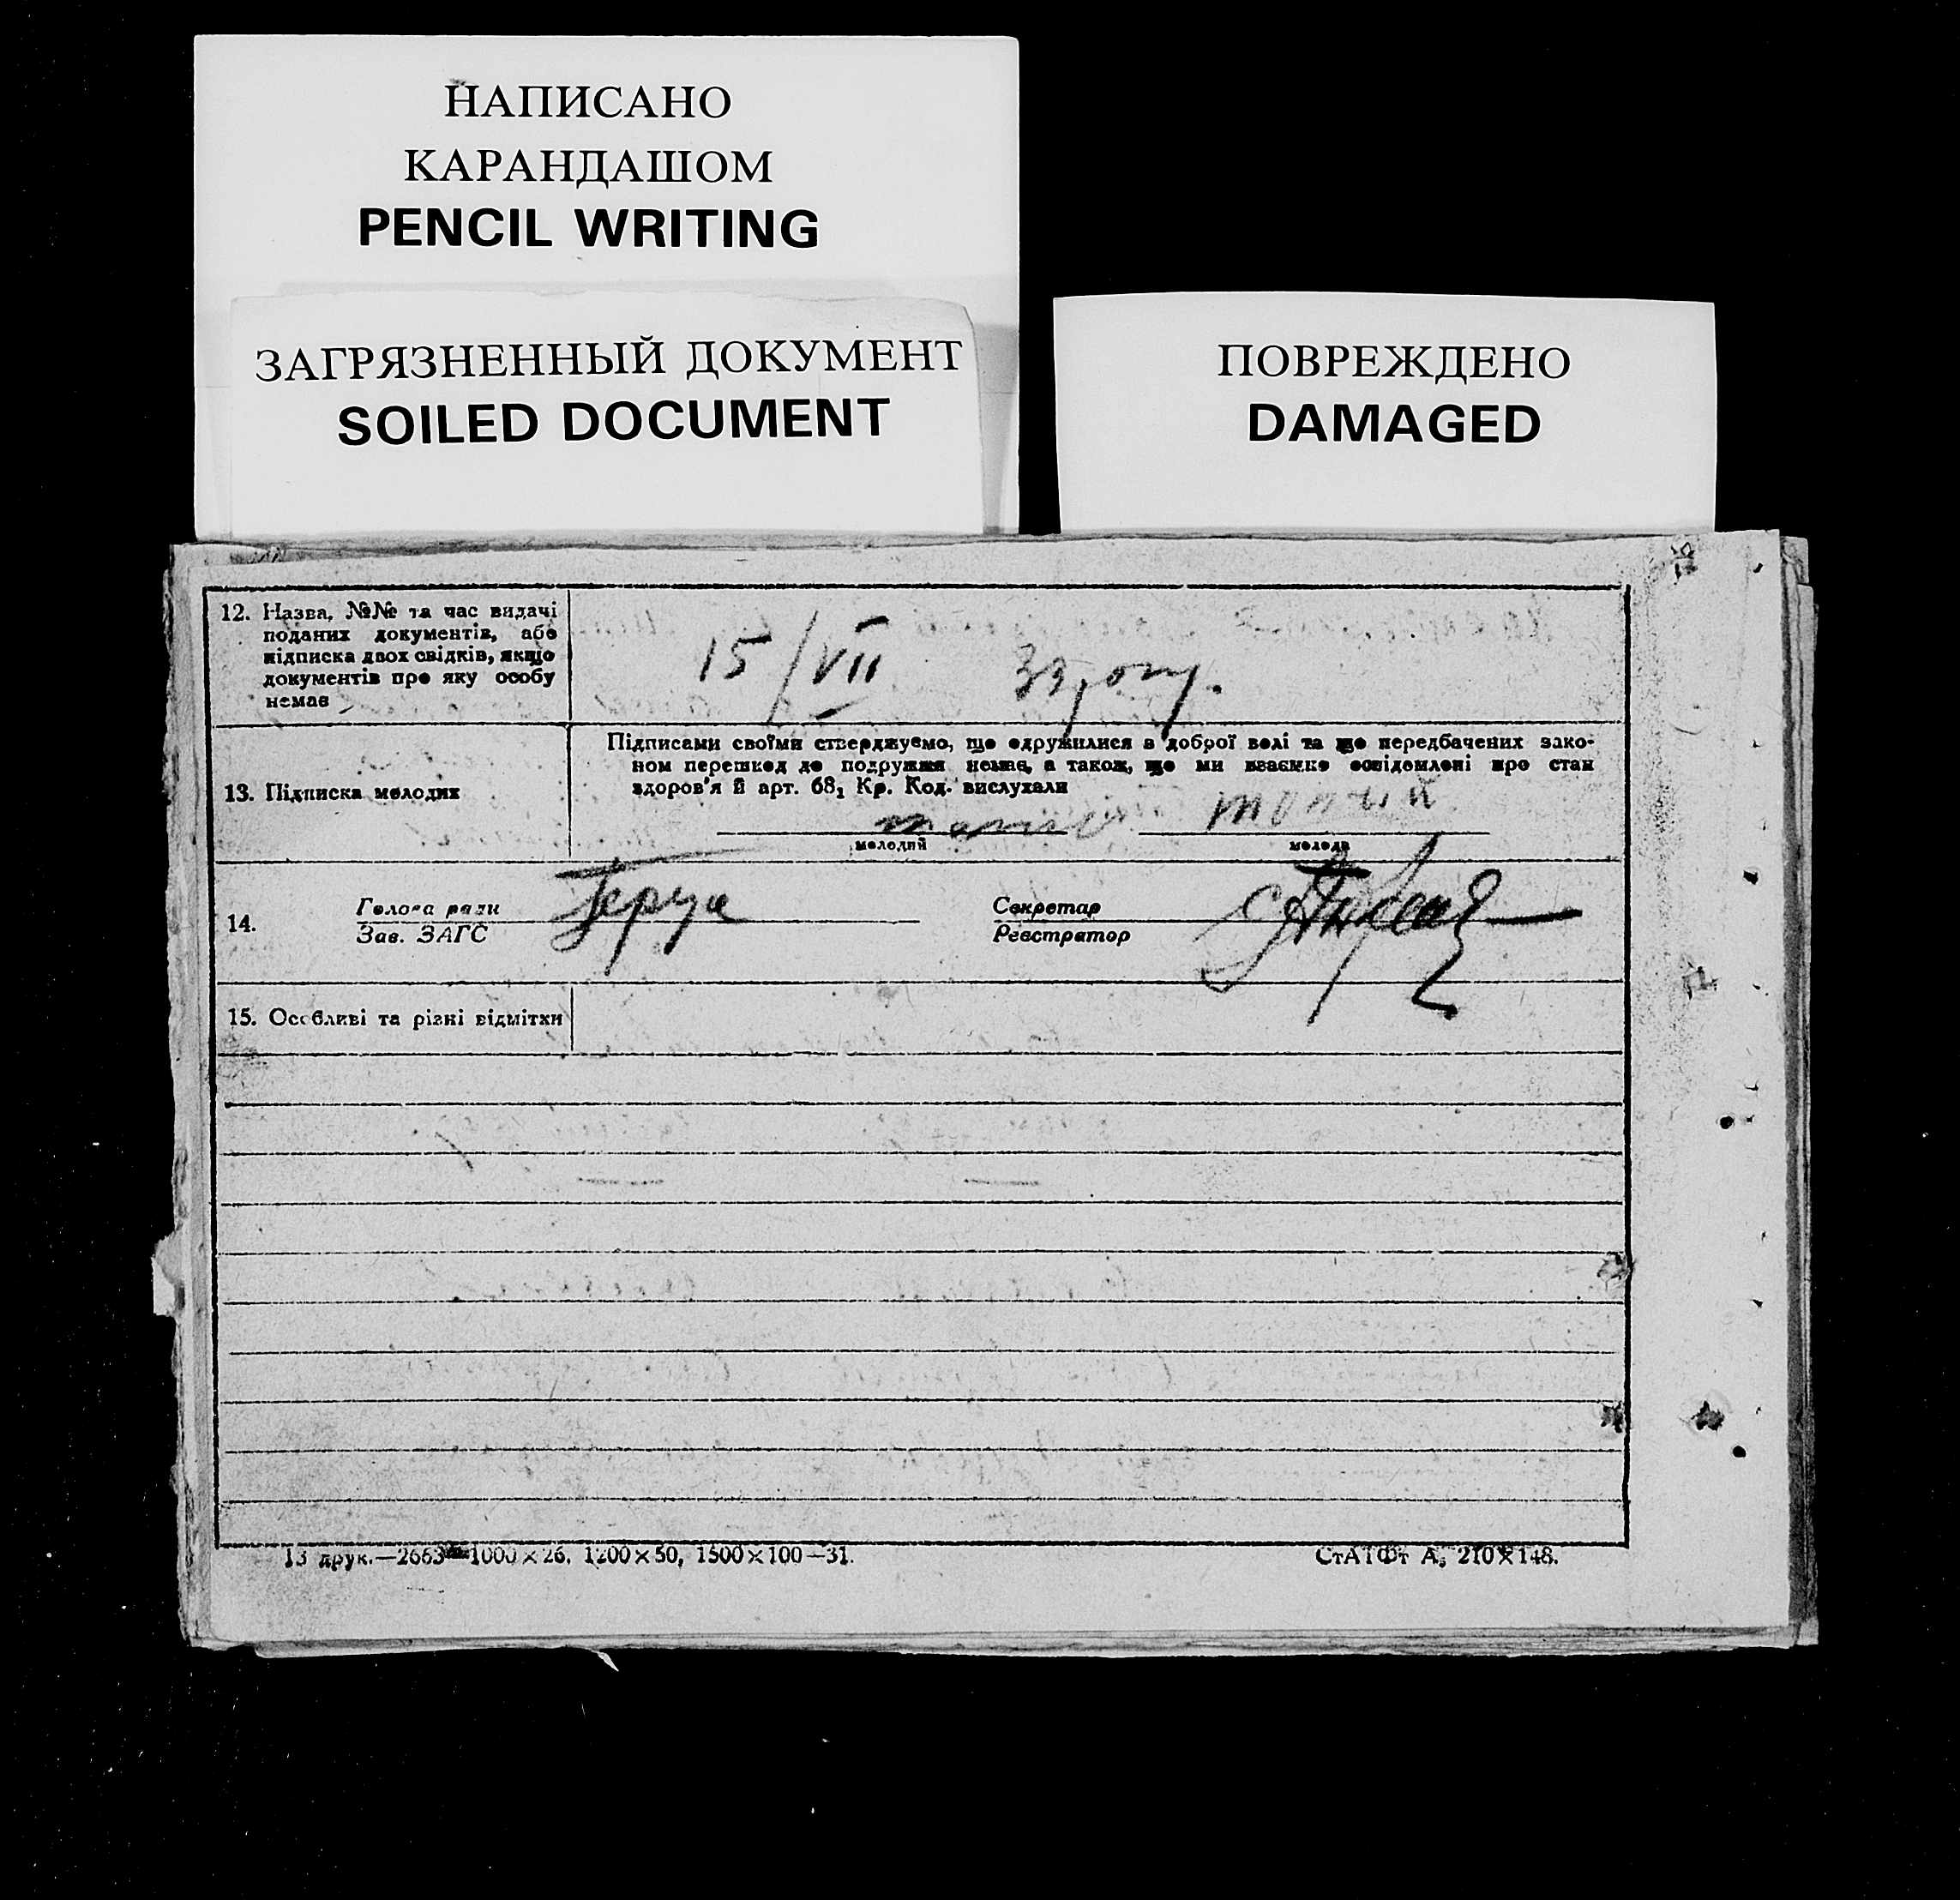 НАПИСАНО
КАРАНДАШОМ
PENCIL WRITING
ЗАГРЯЗНЕННЫЙ ДОКУМЕНТ
SOILED DOCUMENT
ПОВРЕЖДЕНО
DAMAGED
12. Назва, №№ та час видачі
поданих документів, або
підписка двох свідків, якщо
документів про яку особу
немає
15/VII
Підписами своїми стверджуємо, що одружилися з доброї волі та що передбачених зако-
ном перешкод до подружжя немає, а також, що ми взаємно освідомлені про стан
здоров'я й арт. 68₁ Кр. Код. вислухали
13. Підписка молодих
молодий молода
14. Голова ради Секретар
Зав. ЗАГС Реєстратор
15. Особливі та різні відмітки
13 друк.—2663 1000×26. 1200×50, 1500×100—31.
СтАТФт А₅ 210×148.